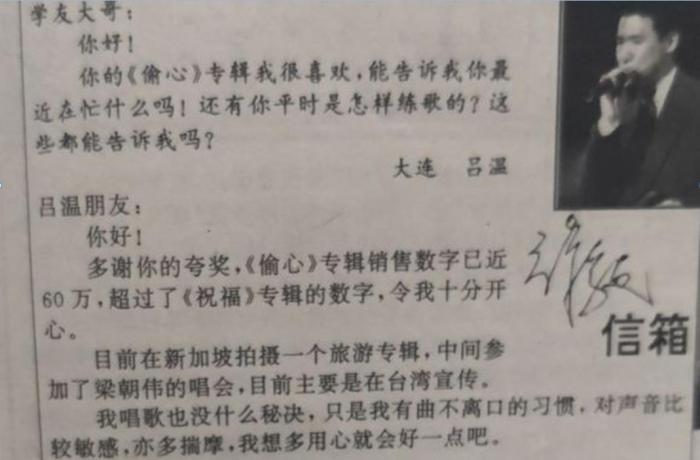 学友大哥：
你好！
你的《偷心》专辑我很喜欢，能告诉我你最
近在忙什么吗！还有你平时是怎样练歌的？这
些都能告诉我吗？
大连 吕温
吕温朋友：
你好！
多谢你的夸奖，《偷心》专辑销售数字已近
60万，超过了《祝福》专辑的数字，令我十分开
心。
信箱
目前在新加坡拍摄一个旅游专辑，中间参
加了梁朝伟的唱会，目前主要是在台湾宣传。
我唱歌也没什么秘决，只是我有曲不离口的习惯，对声音比
较敏感，亦多揣摩，我想多用心就会好一点吧。